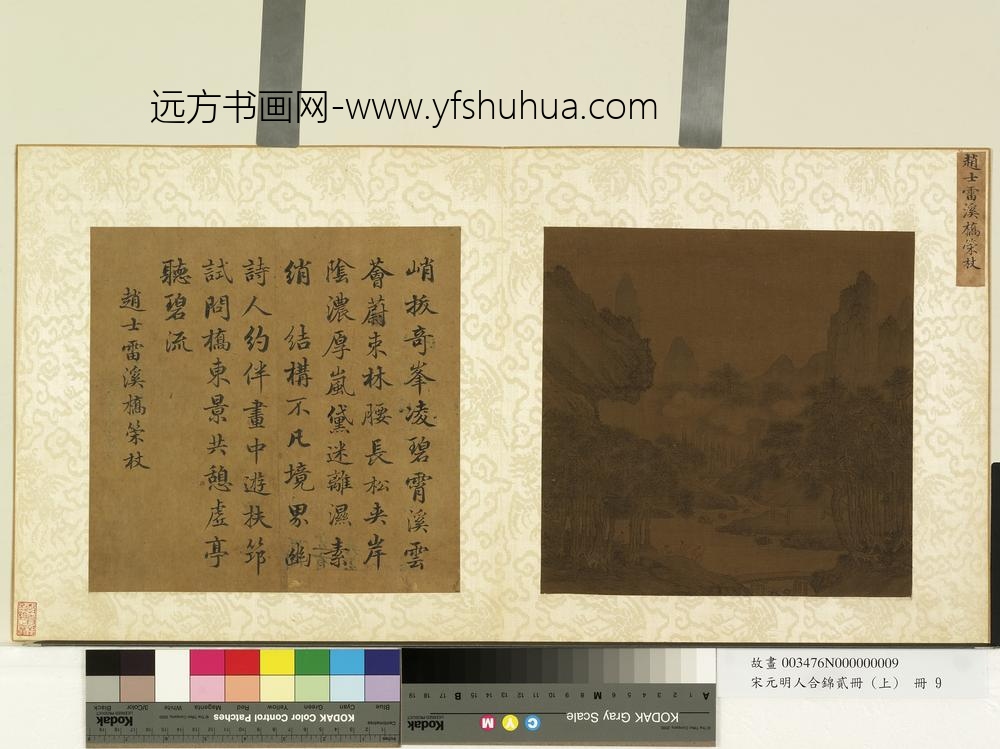 远方书画网-www.yfshuhua.com
趙士雷溪橋策杖
峭拔奇峯凌碧霄溪雲
薈蔚束林腰長松夾岸
陰濃厚嵐黛迷離濕素
綃 結構不凡境界幽
詩人約伴畫中遊扶筇
試問橋東景共憩虛亭
聽碧流
趙士雷溪橋策杖
故畫 003476N000000009
宋元明人合錦貳冊（上） 冊 9
KODAK Color Control Patches
Blue
Cyan
Green
Yellow
Red
Magenta
White
3/Color
Black
Kodak
KODAK Gray Scale
Kodak
C
Y
M
A
M
B